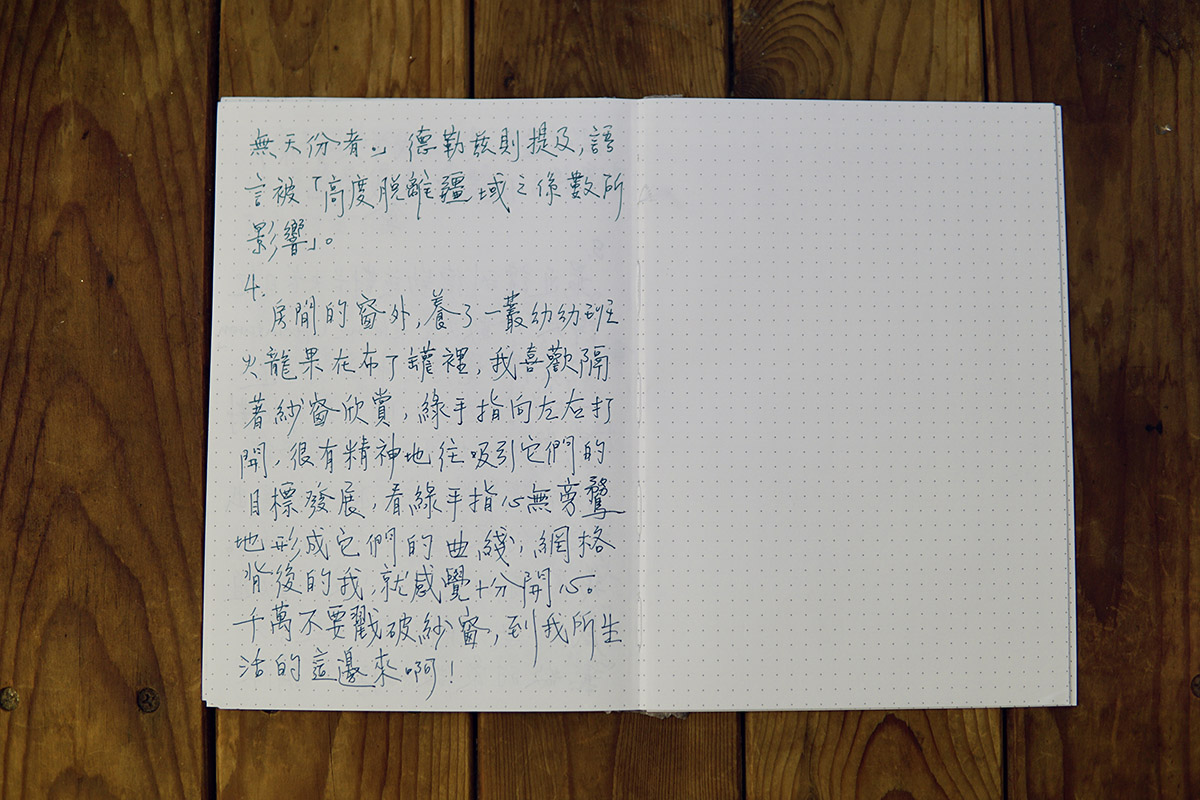 無天份者。」德勒茲則提及,語
言被「高度脫離疆域之係數所
影響」。
4.
房間的窗外,養了一叢幼幼班
火龍果在布丁罐裡,我喜歡隔
著紗窗欣賞,綠手指向左右打
開,很有精神地往吸引它們的
目標發展,看綠手指心無旁騖
地形成它們的曲綫,網格
背後的我,就感覺十分開心。
千萬不要戳破紗窗,到我所生
活的這邊來啊!